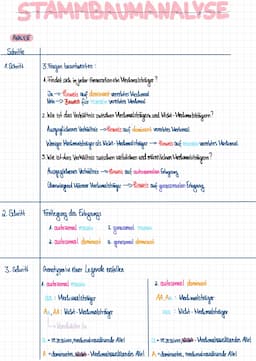 STAMMBAUMANALYSE
ANALYSE
Schritte
1. Schritt
3. Fragen beantworten:
1. Findet sich in jeder Generation ein Merkmalsträger?
Ja → Hinweis auf dominant vererbtes Merkmal
Nein → Beweis für rezessiv vererbtes Merkmal
2. Wie ist das Verhältnis zwischen Merkmalsträgern und Nicht-Merkmalsträgern?
Ausgeglichenes Verhältnis → Hinweis auf dominant vererbtes Merkmal
Weniger Merkmalsträger als Nicht-Merkmalsträger → Hinweis auf rezessiv vererbtes Merkmal
3. Wie ist das Verhältnis zwischen weiblichen und männlichen Merkmalsträgern?
Ausgeglichenes Verhältnis → Hinweis auf autosomalen Erbgang
Überwiegend Männer Merkmalsträger → Hinweis auf gonosomalen Erbgang
2. Schritt
Festlegung des Erbgangs
1. autosomal rezessiv
3. gonosomal rezessiv
2. autosomal dominant
4. gonosomal dominant
3. Schritt
Genotypen in einer Legende erstellen
1. autosomal rezessiv
aa = Merkmalsträger
Aa, AA = Nicht-Merkmalsträger
a = rezessives, merkmalsauslösende Allel
A = dominantes, nicht-Merkmalsauslösendes Allel
2. autosomal dominant
AA, Aa = Merkmalsträger
aa = Nicht-Merkmalsträger